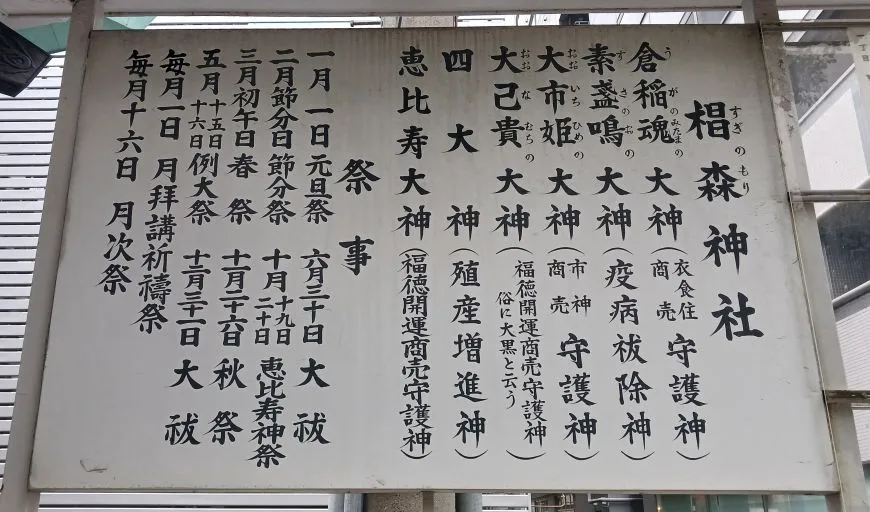 椙森神社
すぎのもり
倉稲魂大神(衣食住商売守護神)
うがのみたまの
素盞鳴大神(疫病祓除神)
すさのおの
大市姫大神(市神商売守護神)
おおいちひめの
大己貴大神(福徳開運商売守護神俗に大黒と云う)
おおなむちの
四大神(殖産増進神)
恵比寿大神(福徳開運商売守護神)
祭事
一月一日元旦祭 六月三十日大祓
二月節分日節分祭 十月十九日二十日恵比寿神祭
三月初午日春祭 十一月二十六日秋祭
五月十五日十六日例大祭 十二月三十一日大祓
毎月一日 月拝講祈禱祭
毎月十六日 月次祭